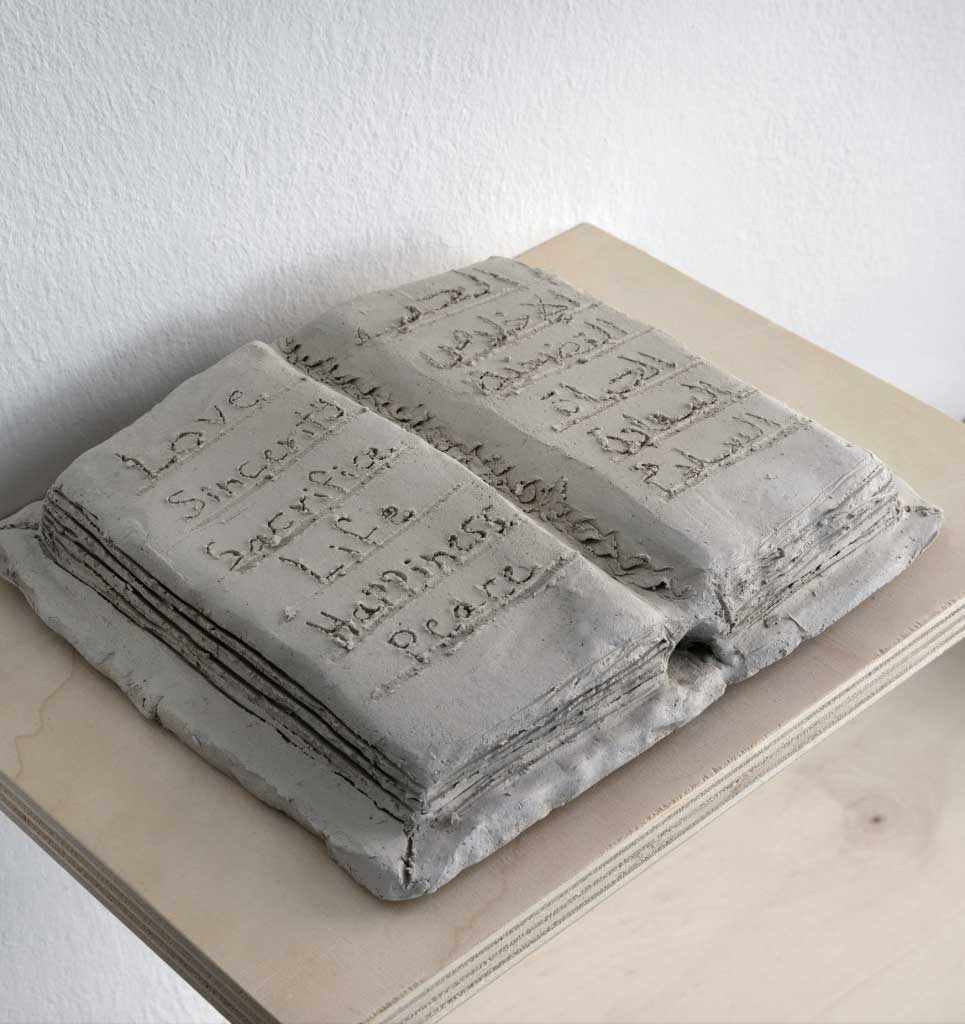 Love
Sincerity
Sacrifice
Life
Happiness
Peace
الحب
التضحية
الحياة
السلام